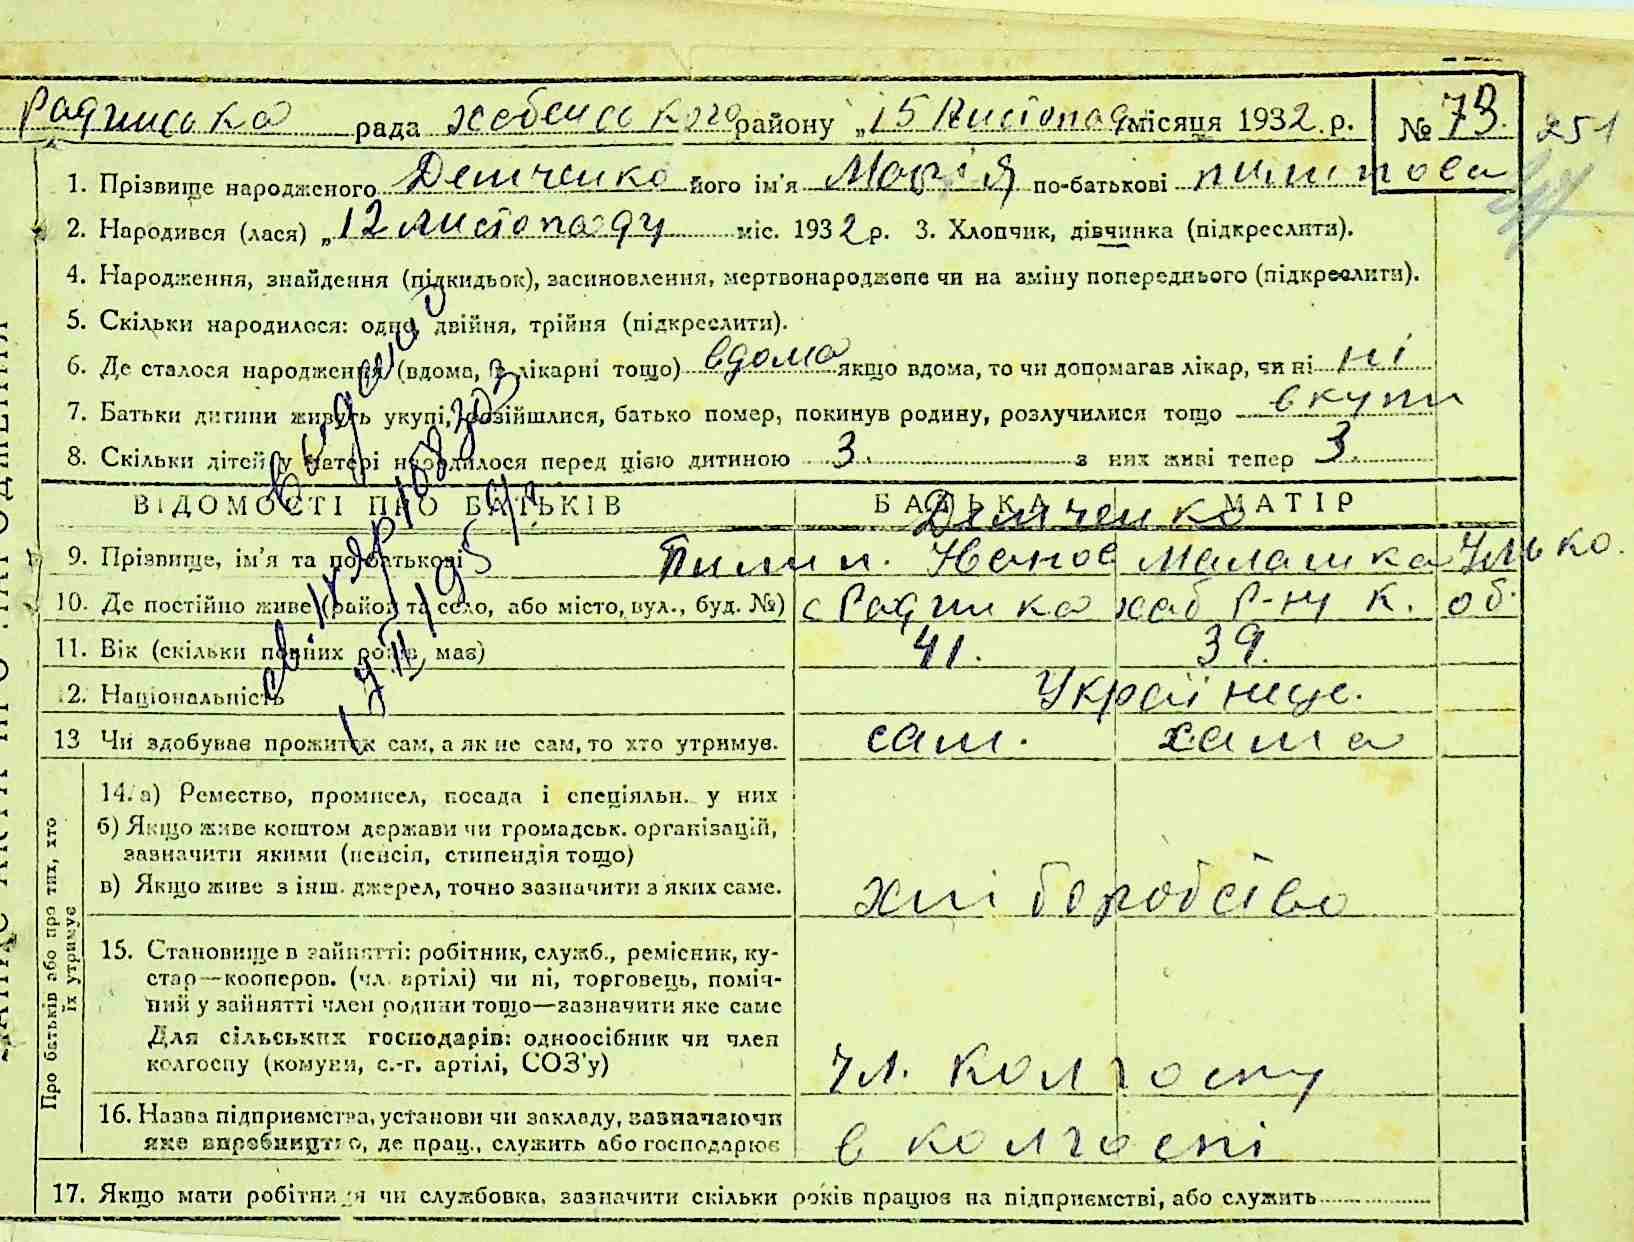 Радинська рада хабенського району „15 Листопад місяця 1932 р. № 73. 251
1. Прізвище народженого Демченко його ім'я Марія по-батькові пилипова
2. Народився (лася) „12 листопаду міс. 1932 р. 3. Хлопчик, дівчинка (підкреслити).
4. Народження, знайдення (підкидьок), засиновлення, мертвонароджене чи на зміну попереднього (підкреслити).
5. Скільки народилося: одно, двійня, трійня (підкреслити).
6. Де сталося народження (вдома, в лікарні тощо) вдома якщо вдома, то чи допомагав лікар, чи ні ні
7. Батьки дитини живуть укупі, розійшлися, батько помер, покинув родину, розлучилися тощо вкупи
8. Скільки дітей у матері народилося перед цією дитиною 3. з них живі тепер 3.
ВІДОМОСТІ ПРО БАТЬКІВ БАТЬКА МАТІР
Демченко
9. Прізвище, ім'я та по-батькові Пилип. Іванов Малашка Улько.
10. Де постійно живе (район та село, або місто, вул., буд. №) с Радинка хаб Р-ну К. об.
11. Вік (скільки повних років має) 41. 39.
12. Національність Українце.
13 Чи здобуває прожиток сам, а як не сам, то хто утримує. сам. сама
Про батьків або про тих, хто їх утримує
14. а) Ремество, промисел, посада і спеціяльн. у них
б) Якщо живе коштом держави чи громадськ. організацій,
зазначити якими (пенсія, стипендія тощо)
в) Якщо живе з інш. джерел, точно зазначити з яких саме. хліборобство
15. Становище в зайнятті: робітник, служб., ремісник, ку-
стар—кооперов. (чл. артілі) чи ні, торговець, поміч-
ний у зайнятті член родини тощо—зазначити яке саме
Для сільських господарів: одноосібник чи член
колгоспу (комуни, с.-г. артілі, СОЗ'у) чл. колгоспу
16. Назва підприємства, установи чи закладу, зазначаючи
яке виробництво, де прац., служить або господарює в колгоспі
17. Якщо мати робітниця чи службовка, зазначити скільки років працює на підприємстві, або служить